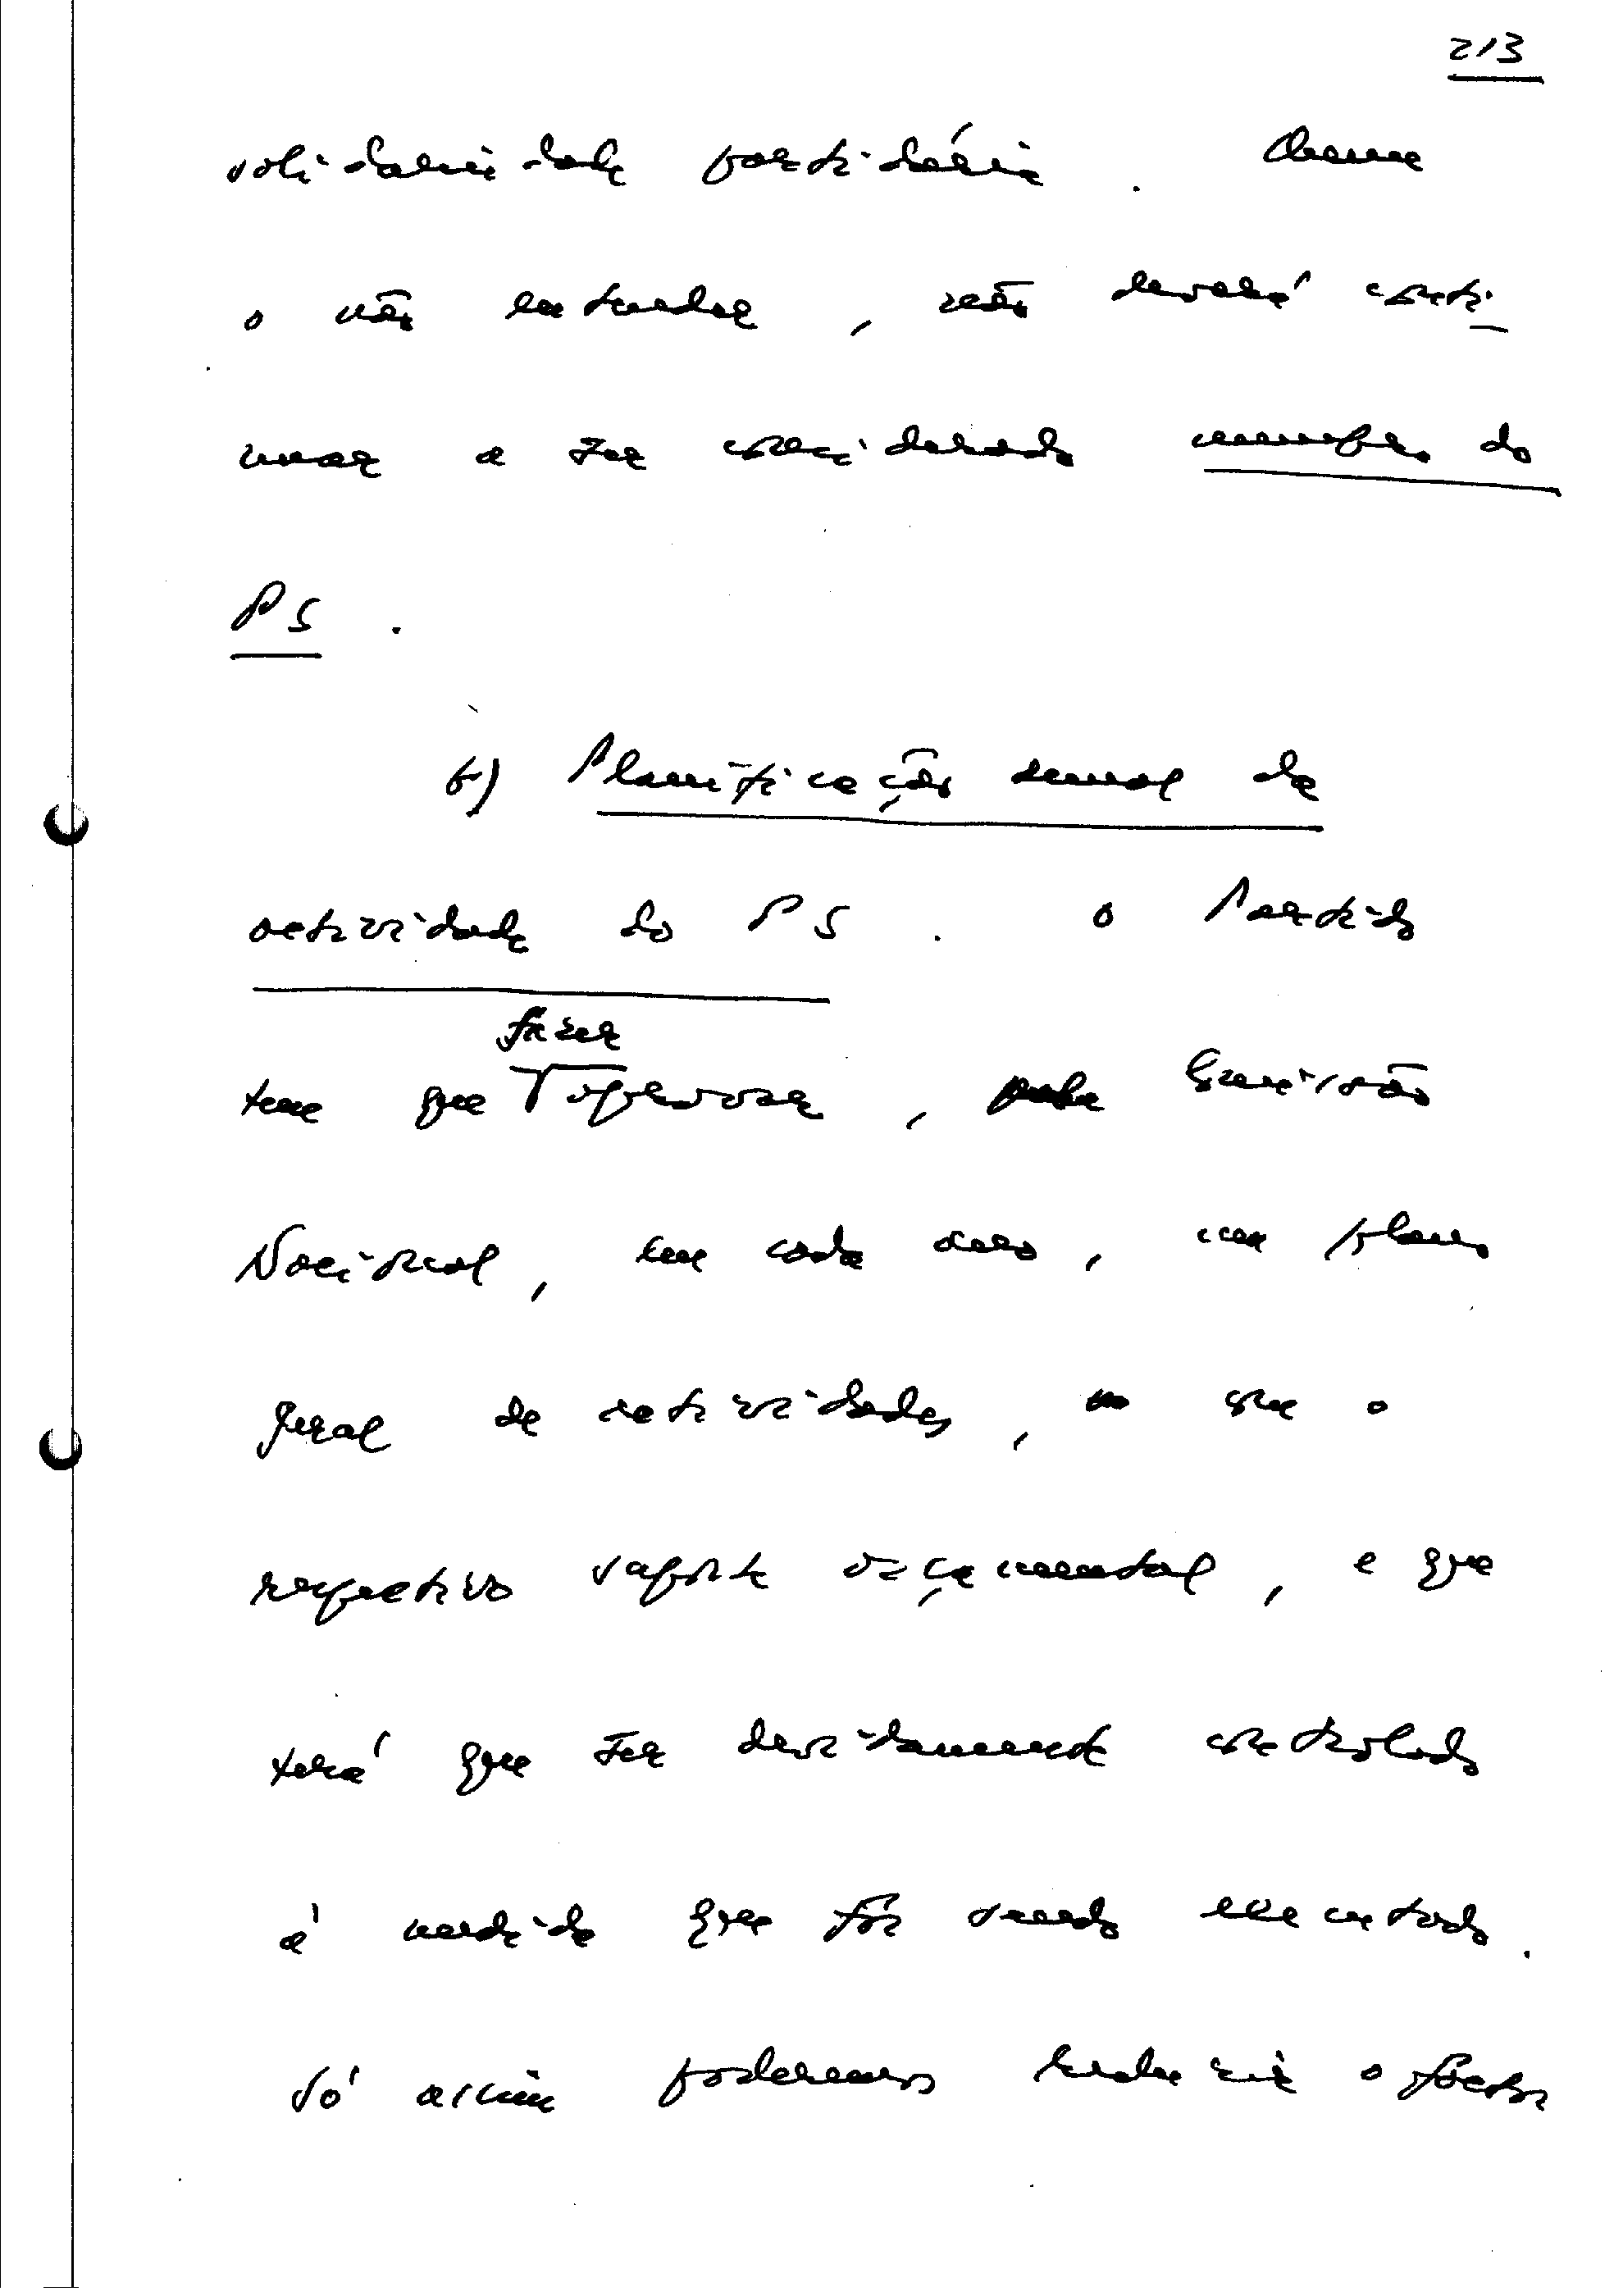 213
solidariedade partidária. Quem
o não entender, não deverá conti-
nuar a ser considerado membro do
PS.
b) Planificação anual da
actividade do PS. O Partido
fazer
tem que aprovar, pela Comissão
Nacional, em cada ano, um plano
geral de actividades, com o
respectivo suporte orçamental, e que
terá que ser devidamente controlado
à medida que fôr sendo executado.
Só assim poderemos reduzir o factor